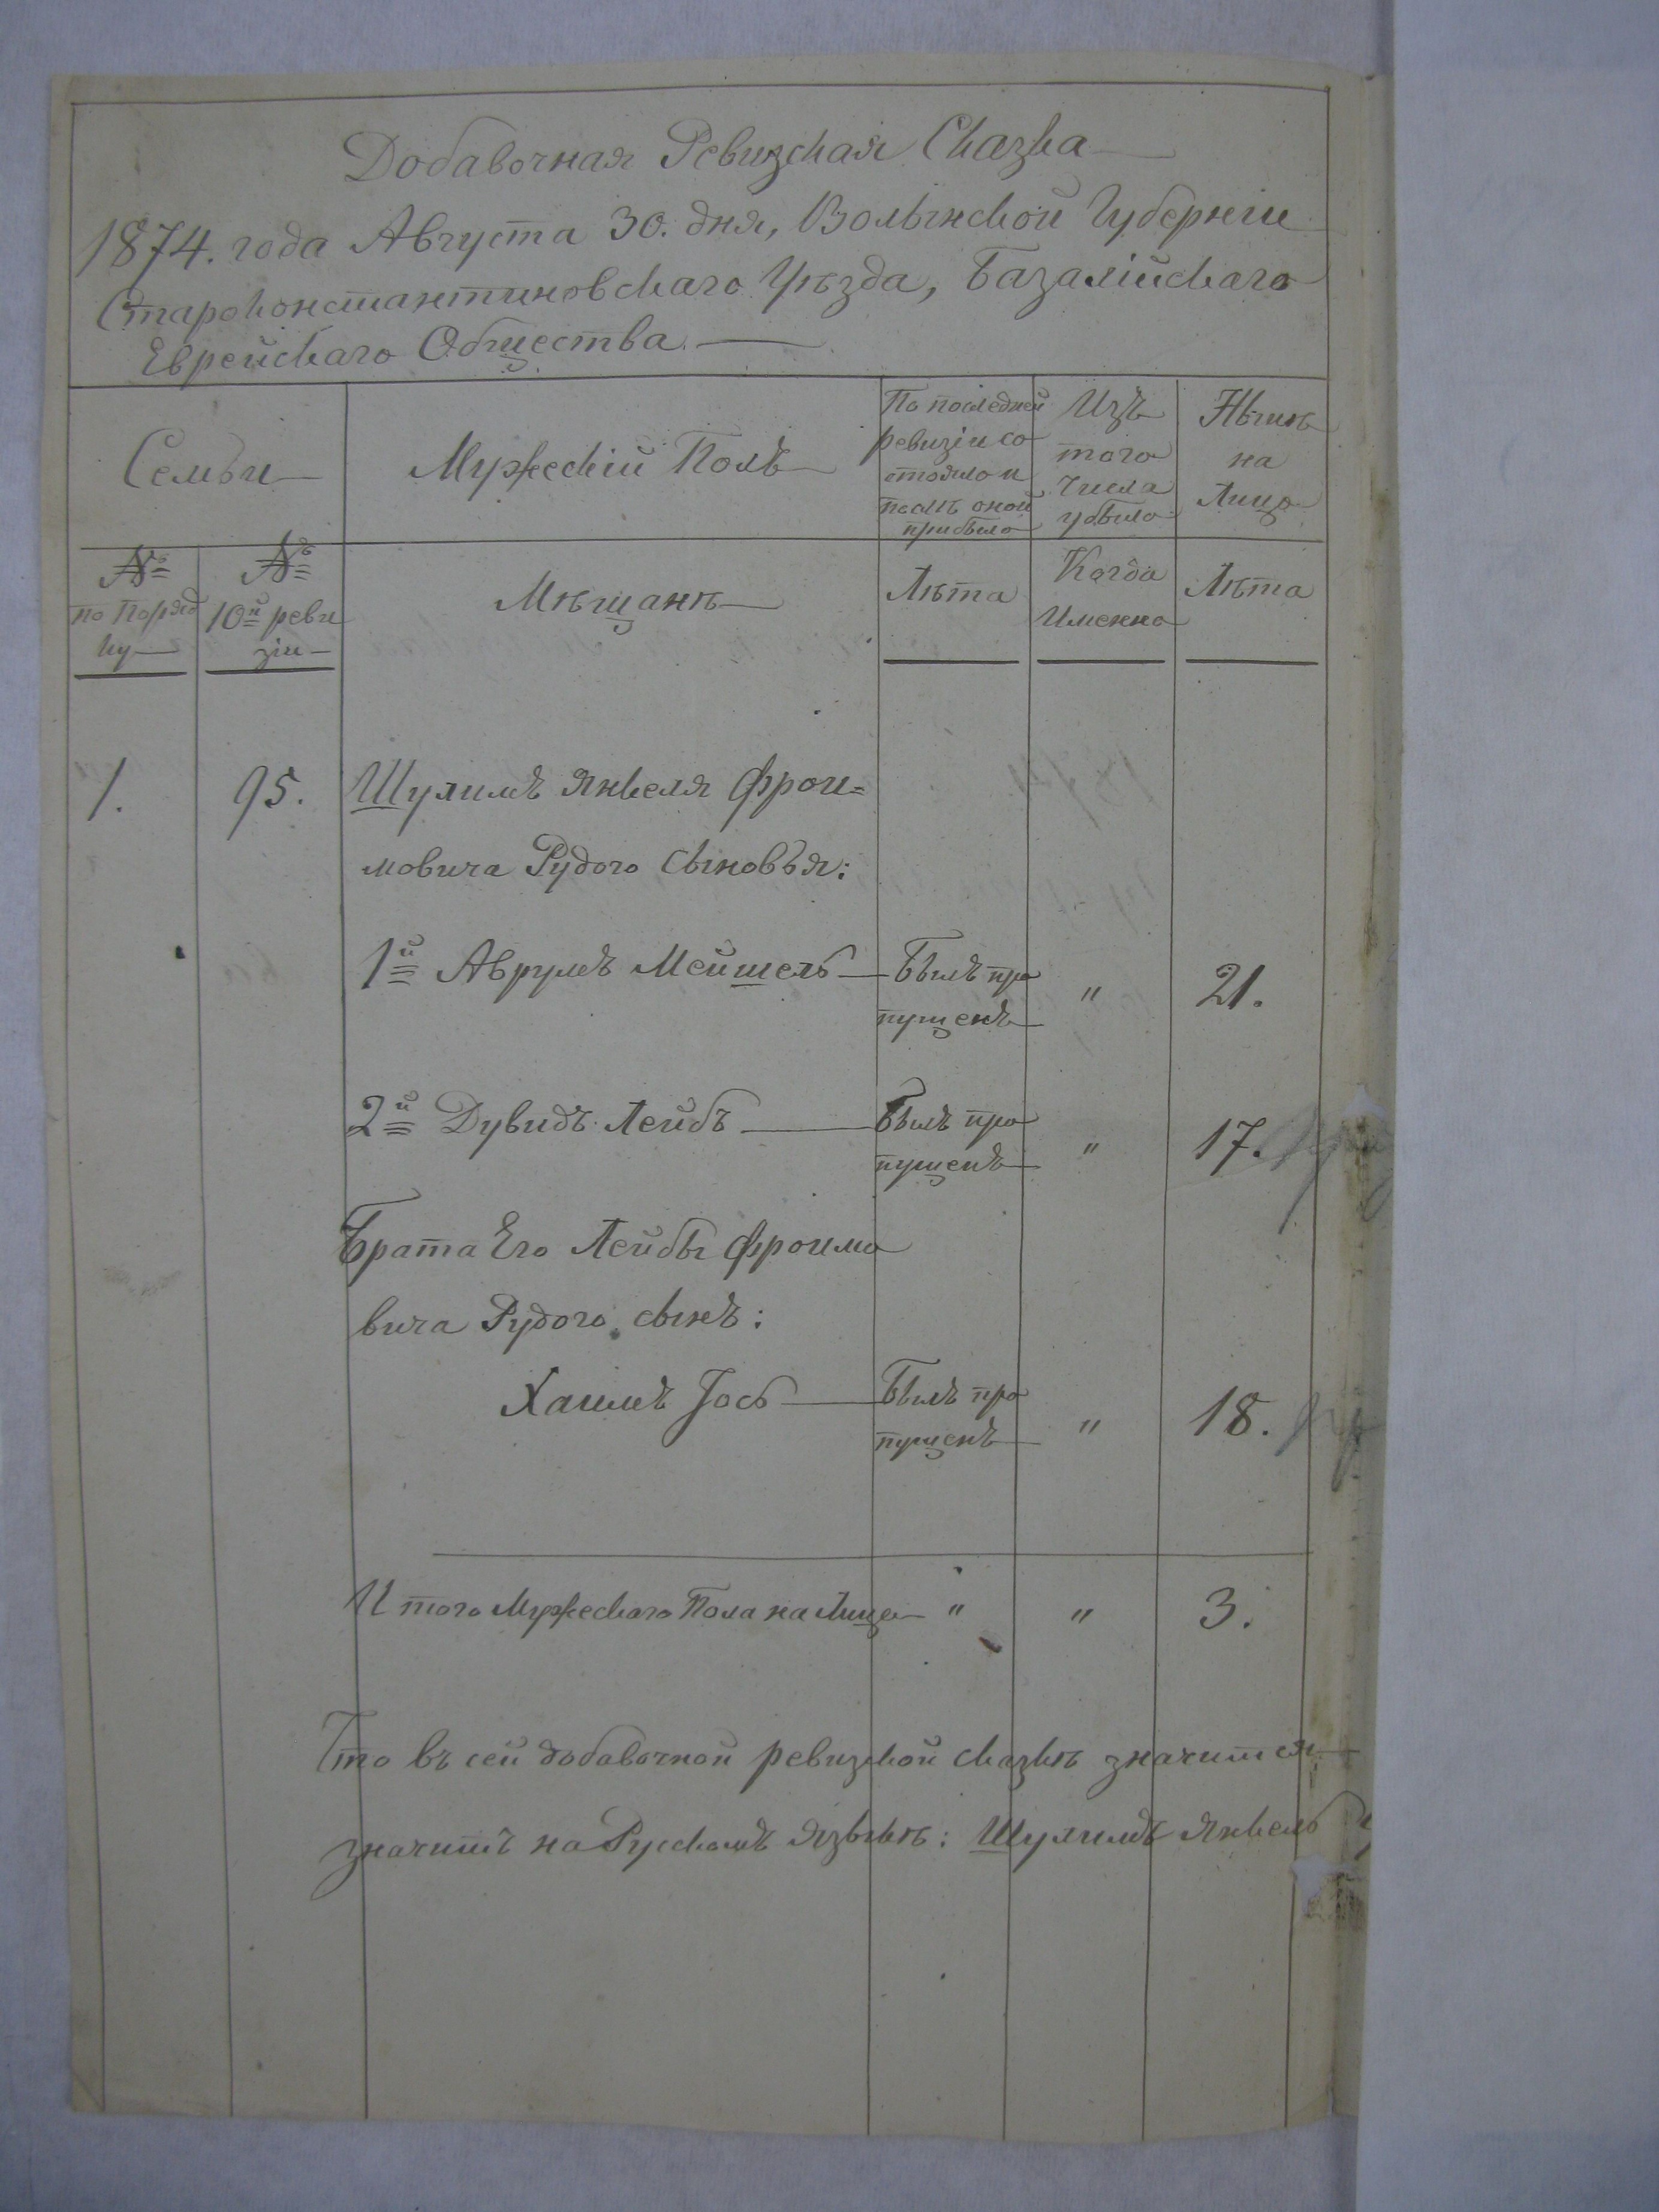 Добавочная Ревизская Сказка
1874. года Августа 30. дня, Волынской Губерніи
Староконстантиновскаго Уѣзда, Базалійскаго
Еврейскаго Общества.
Семьи
Мужескій Полъ
По последней
ревизіи со
стояло и
послѣ оной
прибыло
Изъ
того
числа
убыло
Нынѣ
на
Лицо
№
по Поряд
ку
№
10й реви
зіи
Мѣщанѣ
Лѣта
Когда
Именно
Лѣта
1. 95. Шулимъ Янкеля Фрои=
мовича Рудого сыновья:
1й Аврумъ Мейшель Былъ про " 21.
пущенъ
2й Дувидъ Лейбъ Былъ про " 17.
пущенъ
Брата Его Лейбы Фроимо
вича Рудого сынъ:
Хаимъ Іось Былъ про " 18.
пущенъ
Итого Мужескаго Пола на Лицо " " 3.
Что въ сей добавочной ревизкой сказкѣ значится
значитъ на Рускомъ языкѣ: Шулимъ Янкель